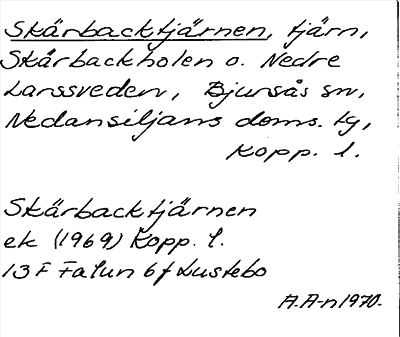 Skärbacktjärnen, tjärn,
Skärbackholen o. Nedre
Larssveden, Bjursås sn,
Nedansiljans doms. tg,
Kopp. l.
Skärbacktjärnen
ek (1969) Kopp. l.
13 F Falun 6 f Lustebo
A.A-n 1970.